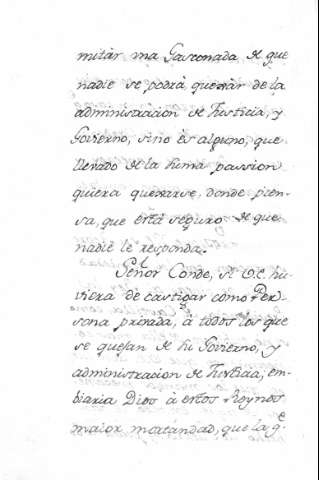 mitàr una Gasconada, de que
nadie se podrà quexàr de la
administracion de Justicia, y
Govierno, sino ès alguno, que
llevado de la suma passion
quiera quexarse, donde pien-
sa, que està seguro de que
nadie le responda.
Señor Conde, si V.E. hu-
viera de castigar como Per-
sona privada, à todos los que
se quejan de su Govierno, y
administracion de Justicia, em-
biaria Dios à estos Reynos
maior mortandad, que la q.e